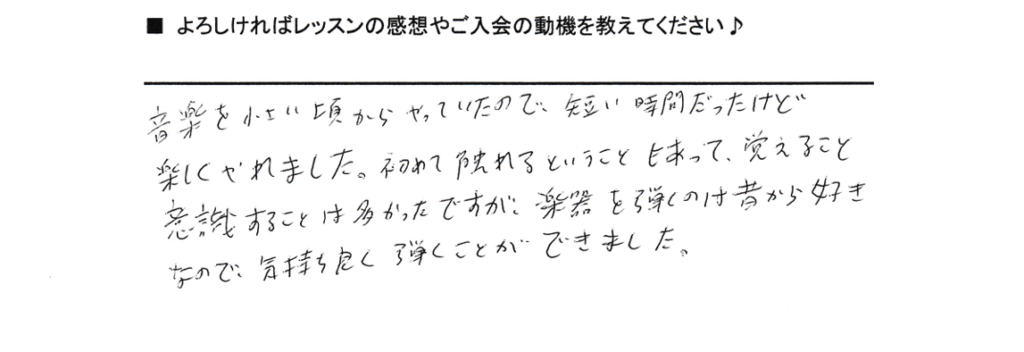 ■ よろしければレッスンの感想やご入会の動機を教えてください♪
音楽を小さい頃からやっていたので、短い時間だったけど
楽しくやれました。初めて触れるということもあって、覚えること
意識することは多かったですが、楽器を弾くのは昔から好き
なので、気持ち良く弾くことができました。